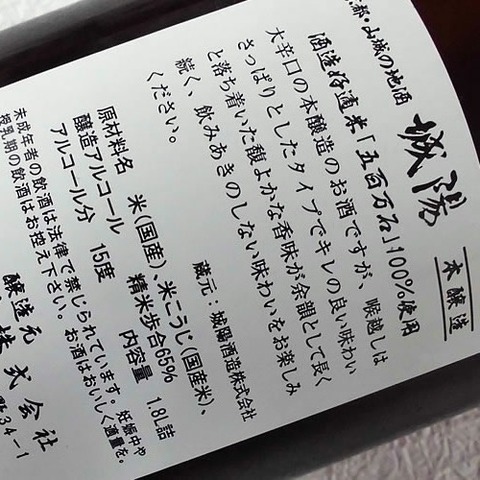 都・山城の地酒
城陽
本醸造
酒造好適米「五百万石」100%使用
大辛口の本醸造のお酒ですが、喉越しは
さっぱりとしたタイプでキレの良い味わい
と落ち着いた馥よかな香味が余韻として長く
続く、飲みあきのしない味わいをお楽しみ
ください。
蔵元：城陽酒造株式会社
原材料名 米(国産)、米こうじ(国産米)、
醸造アルコール 精米歩合65%
アルコール分 15度 内容量 1.8L詰
未成年者の飲酒は法律で禁じられています。妊娠中や
授乳期の飲酒はお控え下さい。お酒はおいしく適量を。
醸造元
株式会社
34-1